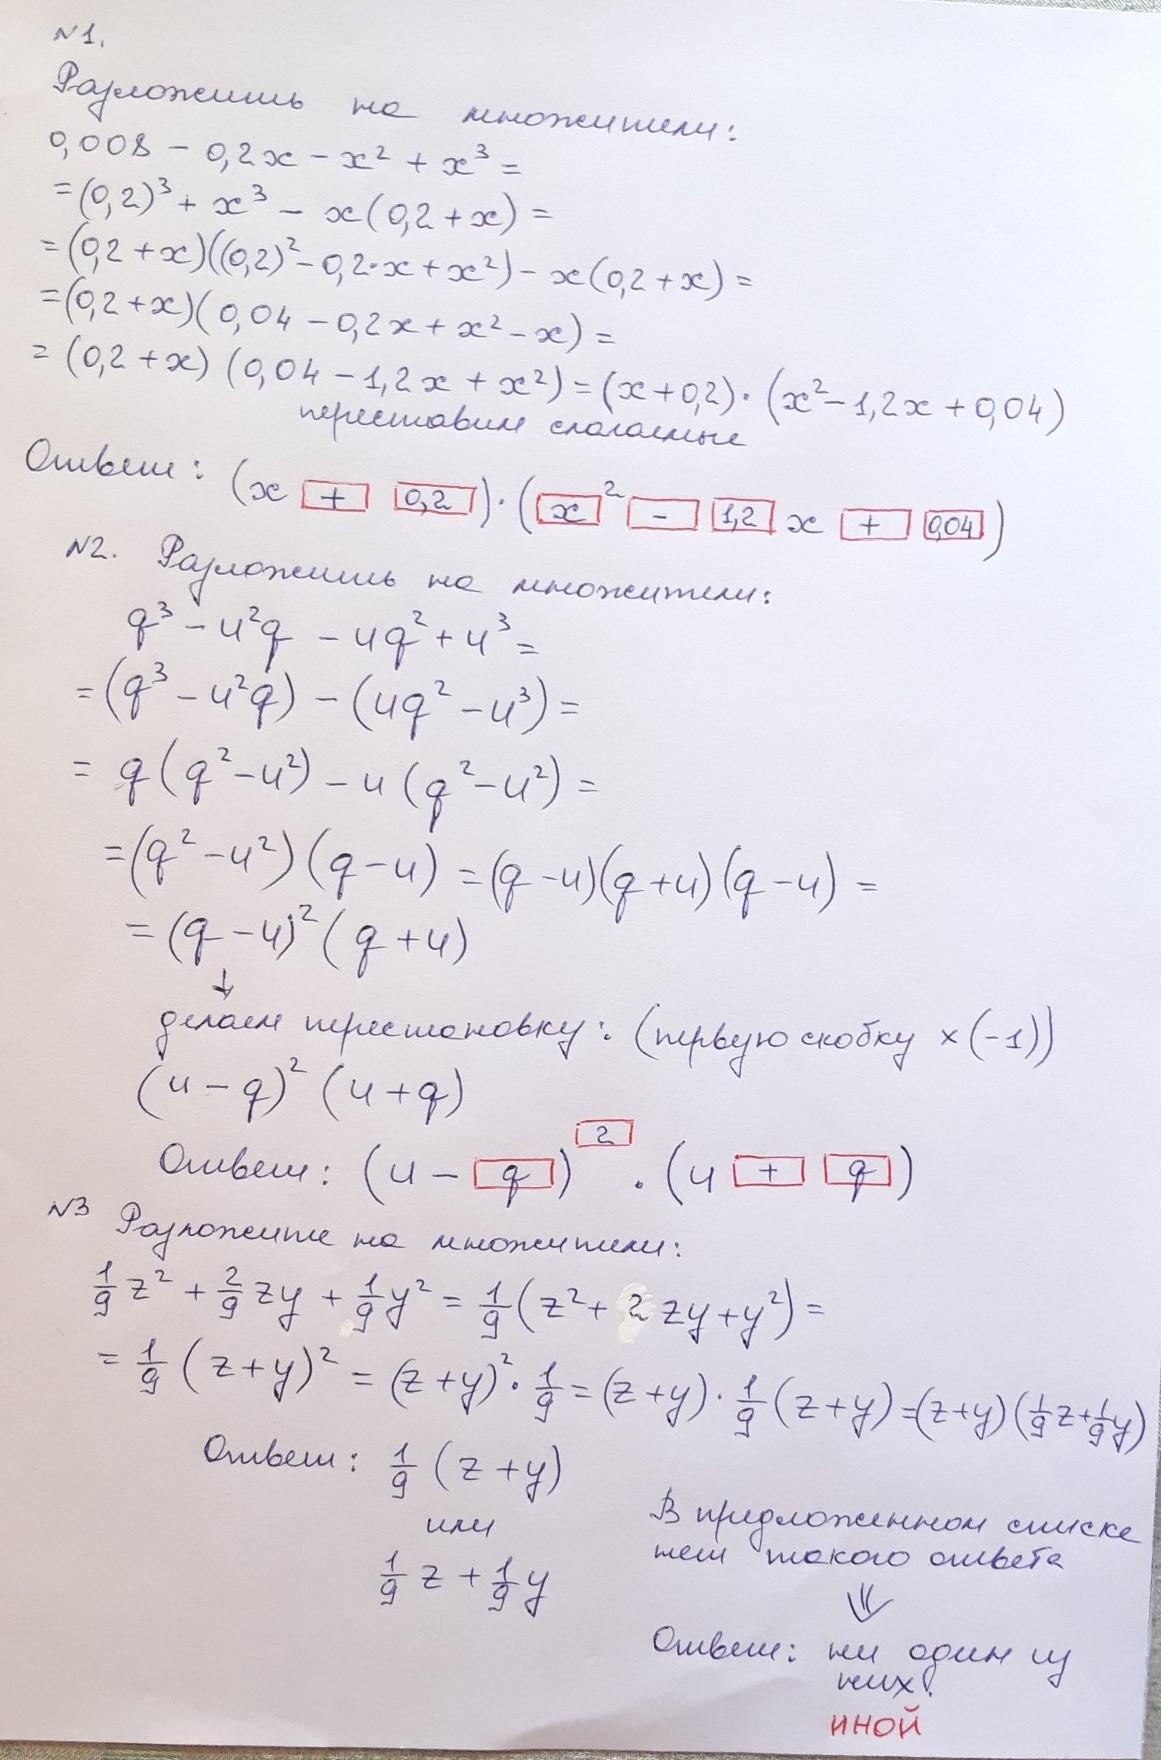 №1.
Разложить на множители:
0,008 - 0,2x - x² + x³ =
= (0,2)³ + x³ - x(0,2 + x) =
= (0,2 + x)((0,2)² - 0,2·x + x²) - x(0,2 + x) =
= (0,2 + x)(0,04 - 0,2x + x² - x) =
= (0,2 + x) (0,04 - 1,2x + x²) = (x + 0,2)·(x² - 1,2x + 0,04)
переставим слагаемые
Ответ: (x + 0,2)·(x² - 1,2 x + 0,04)
№2. Разложить на множители:
q³ - u²q - uq² + u³ =
= (q³ - u²q) - (uq² - u³) =
= q(q² - u²) - u(q² - u²) =
= (q² - u²)(q - u) = (q - u)(q + u)(q - u) =
= (q - u)²(q + u)
↓
делаем перестановку: (первую скобку × (-1))
(u - q)² (u + q)
Ответ: (u - q)² · (u + q)
№3 Разложите на множители:
1/9 z² + 2/9 zy + 1/9 y² = 1/9 (z² + 2 zy + y²) =
= 1/9 (z + y)² = (z + y)² · 1/9 = (z + y) · 1/9 (z + y) = (z + y)(1/9 z + 1/9 y)
Ответ: 1/9 (z + y)
или
1/9 z + 1/9 y
В предложенном списке
нет такого ответа
⇓
Ответ: ни один из
них.
иной